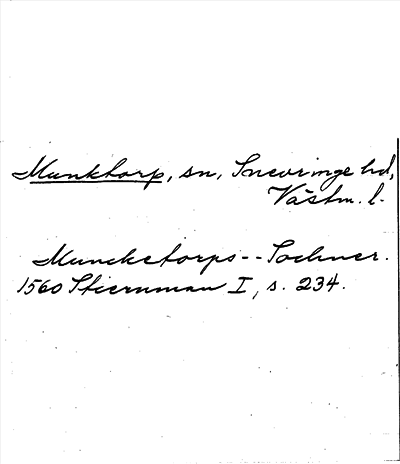 Munktorp, sn, Snevringe hd,
Västm. l.
Muncketorps -- Sochner.
1560 Stiernman I, s. 234.